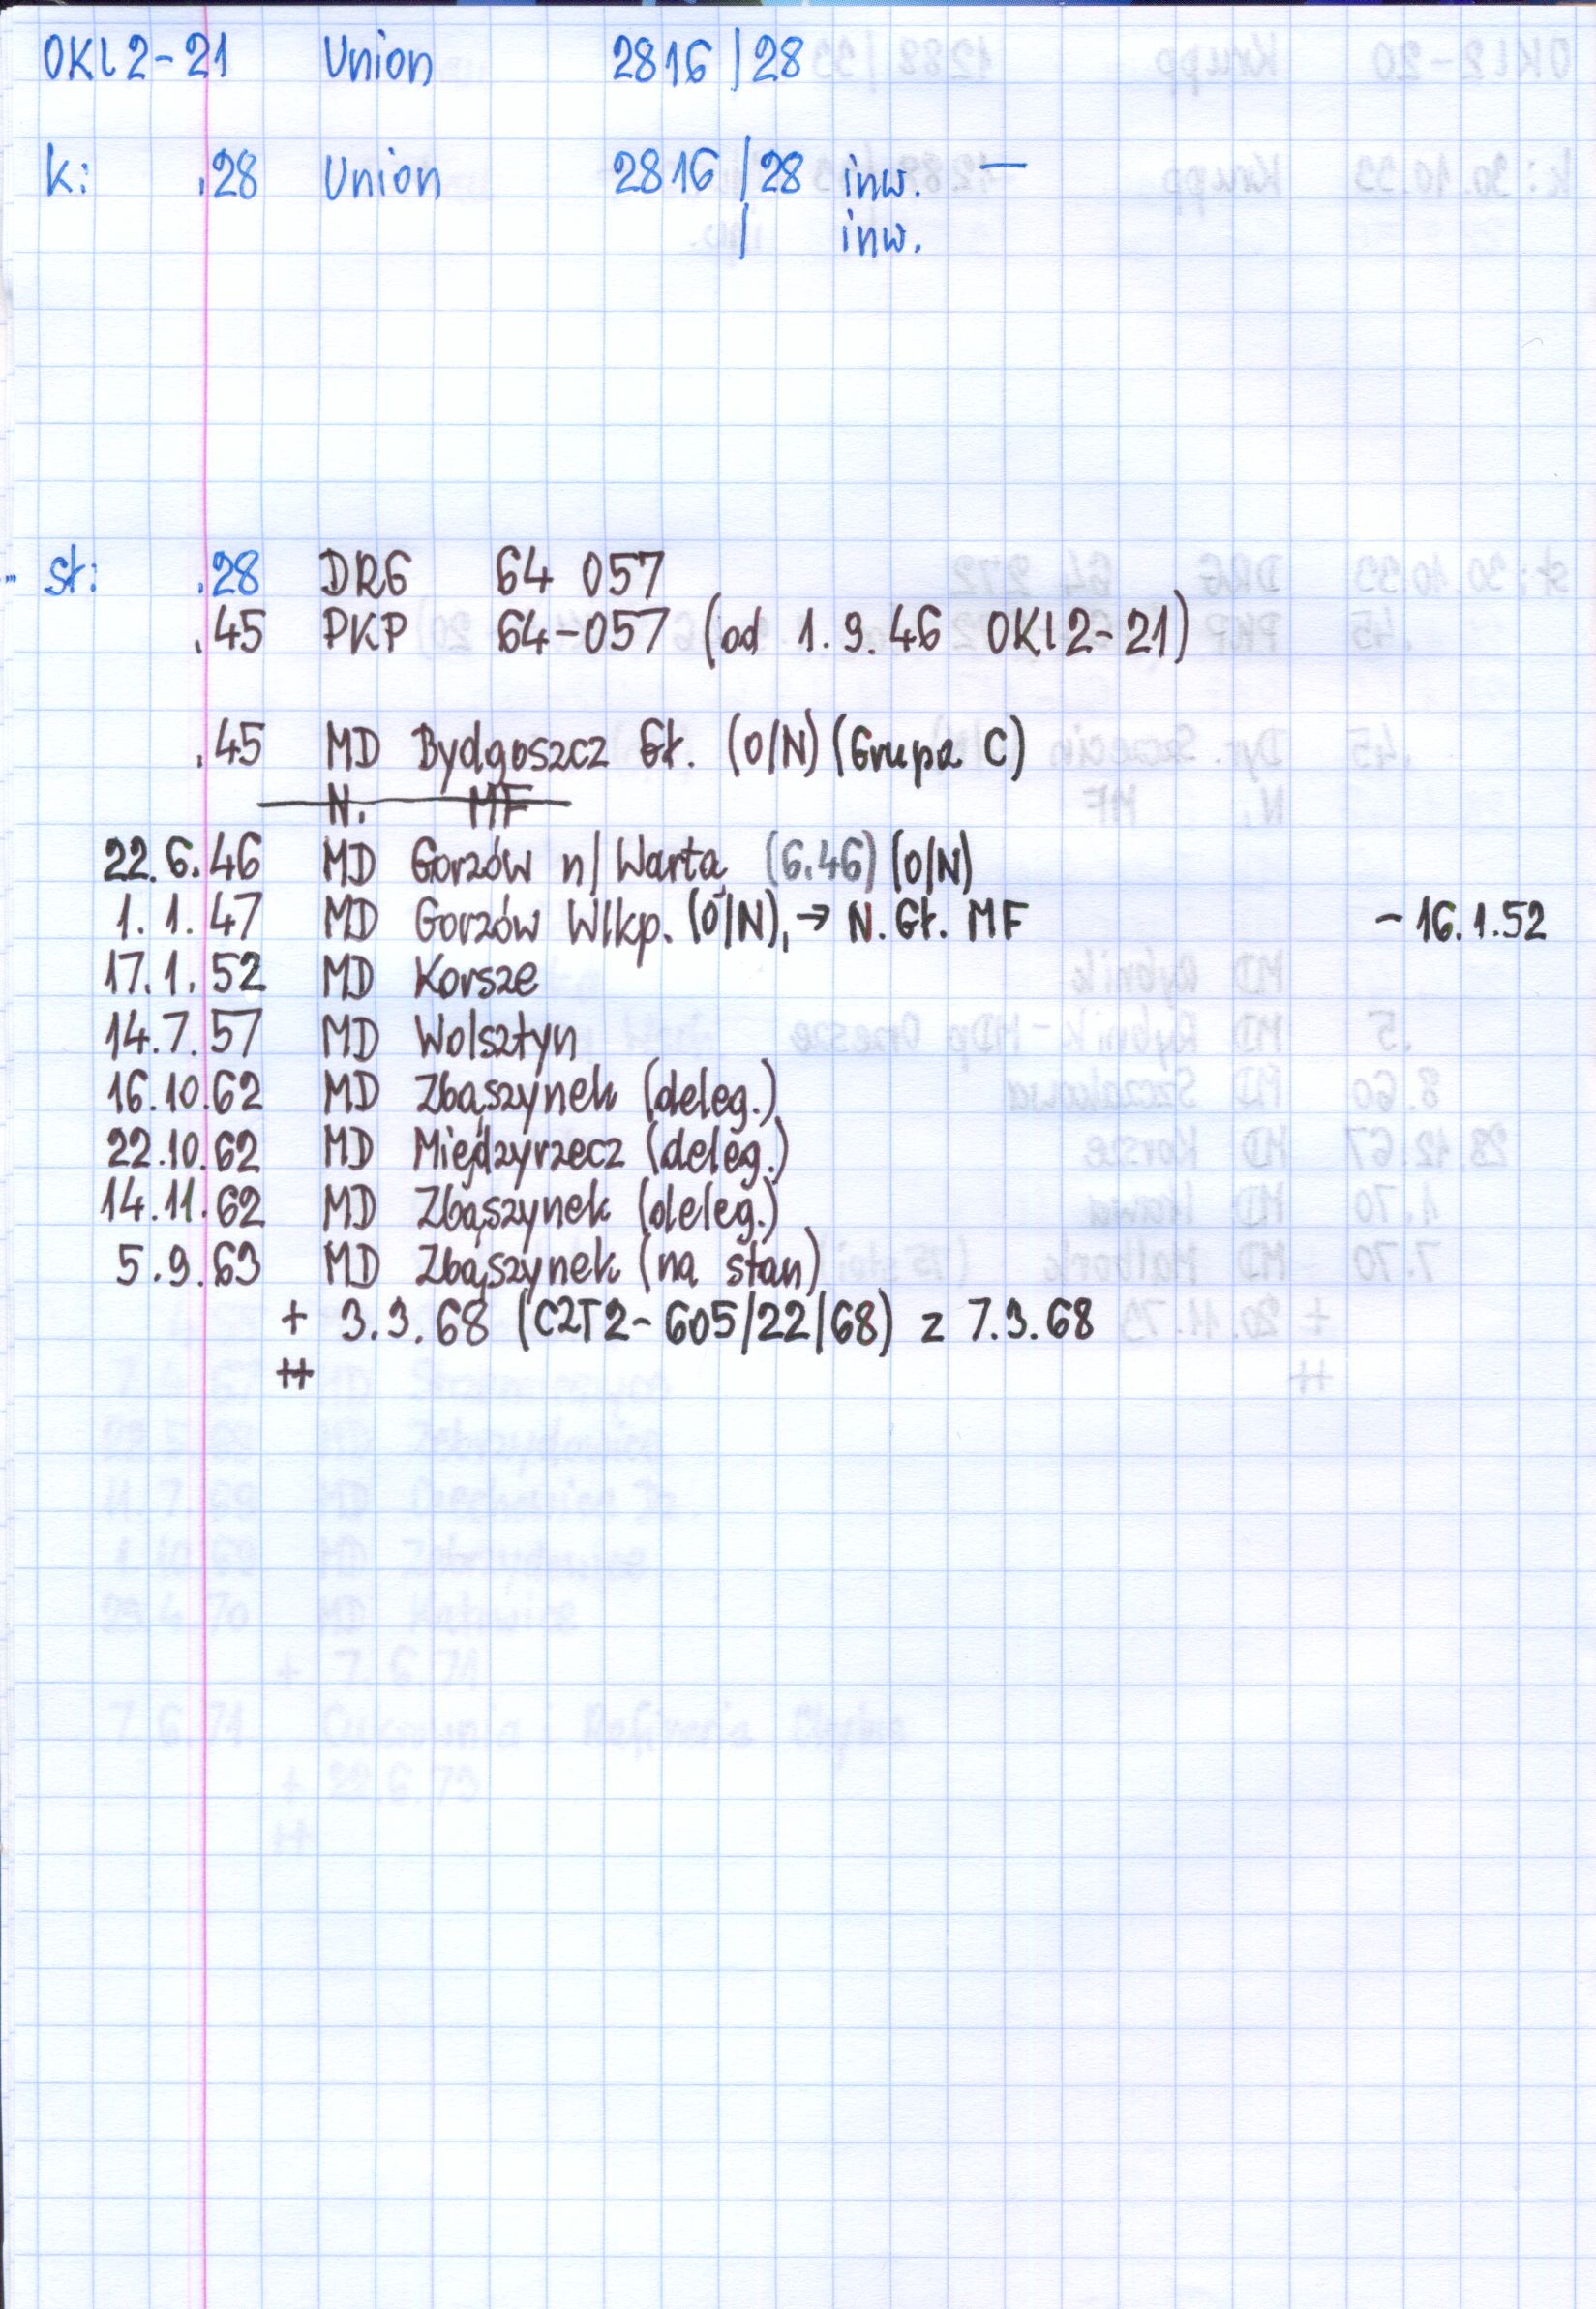 OKl2-21 Union 2816/28
k: .28 Union 2816/28 inw. —
/ inw.
st: .28 DRG 64 057
.45 PKP 64-057 (od 1.9.46 OKl2-21)
.45 MD Bydgoszcz Gł. (O/N) (Grupa C)
N. MF
22.6.46 MD Gorzów n/Wartą (6.46) (O/N)
1.1.47 MD Gorzów Wlkp. (O/N), → N. Gł. MF - 16.1.52
17.1.52 MD Korsze
14.7.57 MD Wolsztyn
16.10.62 MD Zbąszynek (deleg.)
22.10.62 MD Międzyrzecz (deleg.)
14.11.62 MD Zbąszynek (deleg.)
5.9.63 MD Zbąszynek (na stan)
+ 3.3.68 (C2T2-605/22/68) z 7.3.68
++